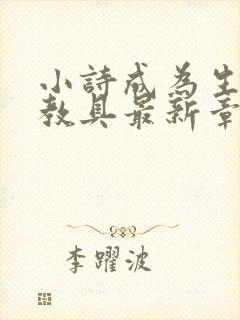 小詩成為生
教具最新章
李躍波